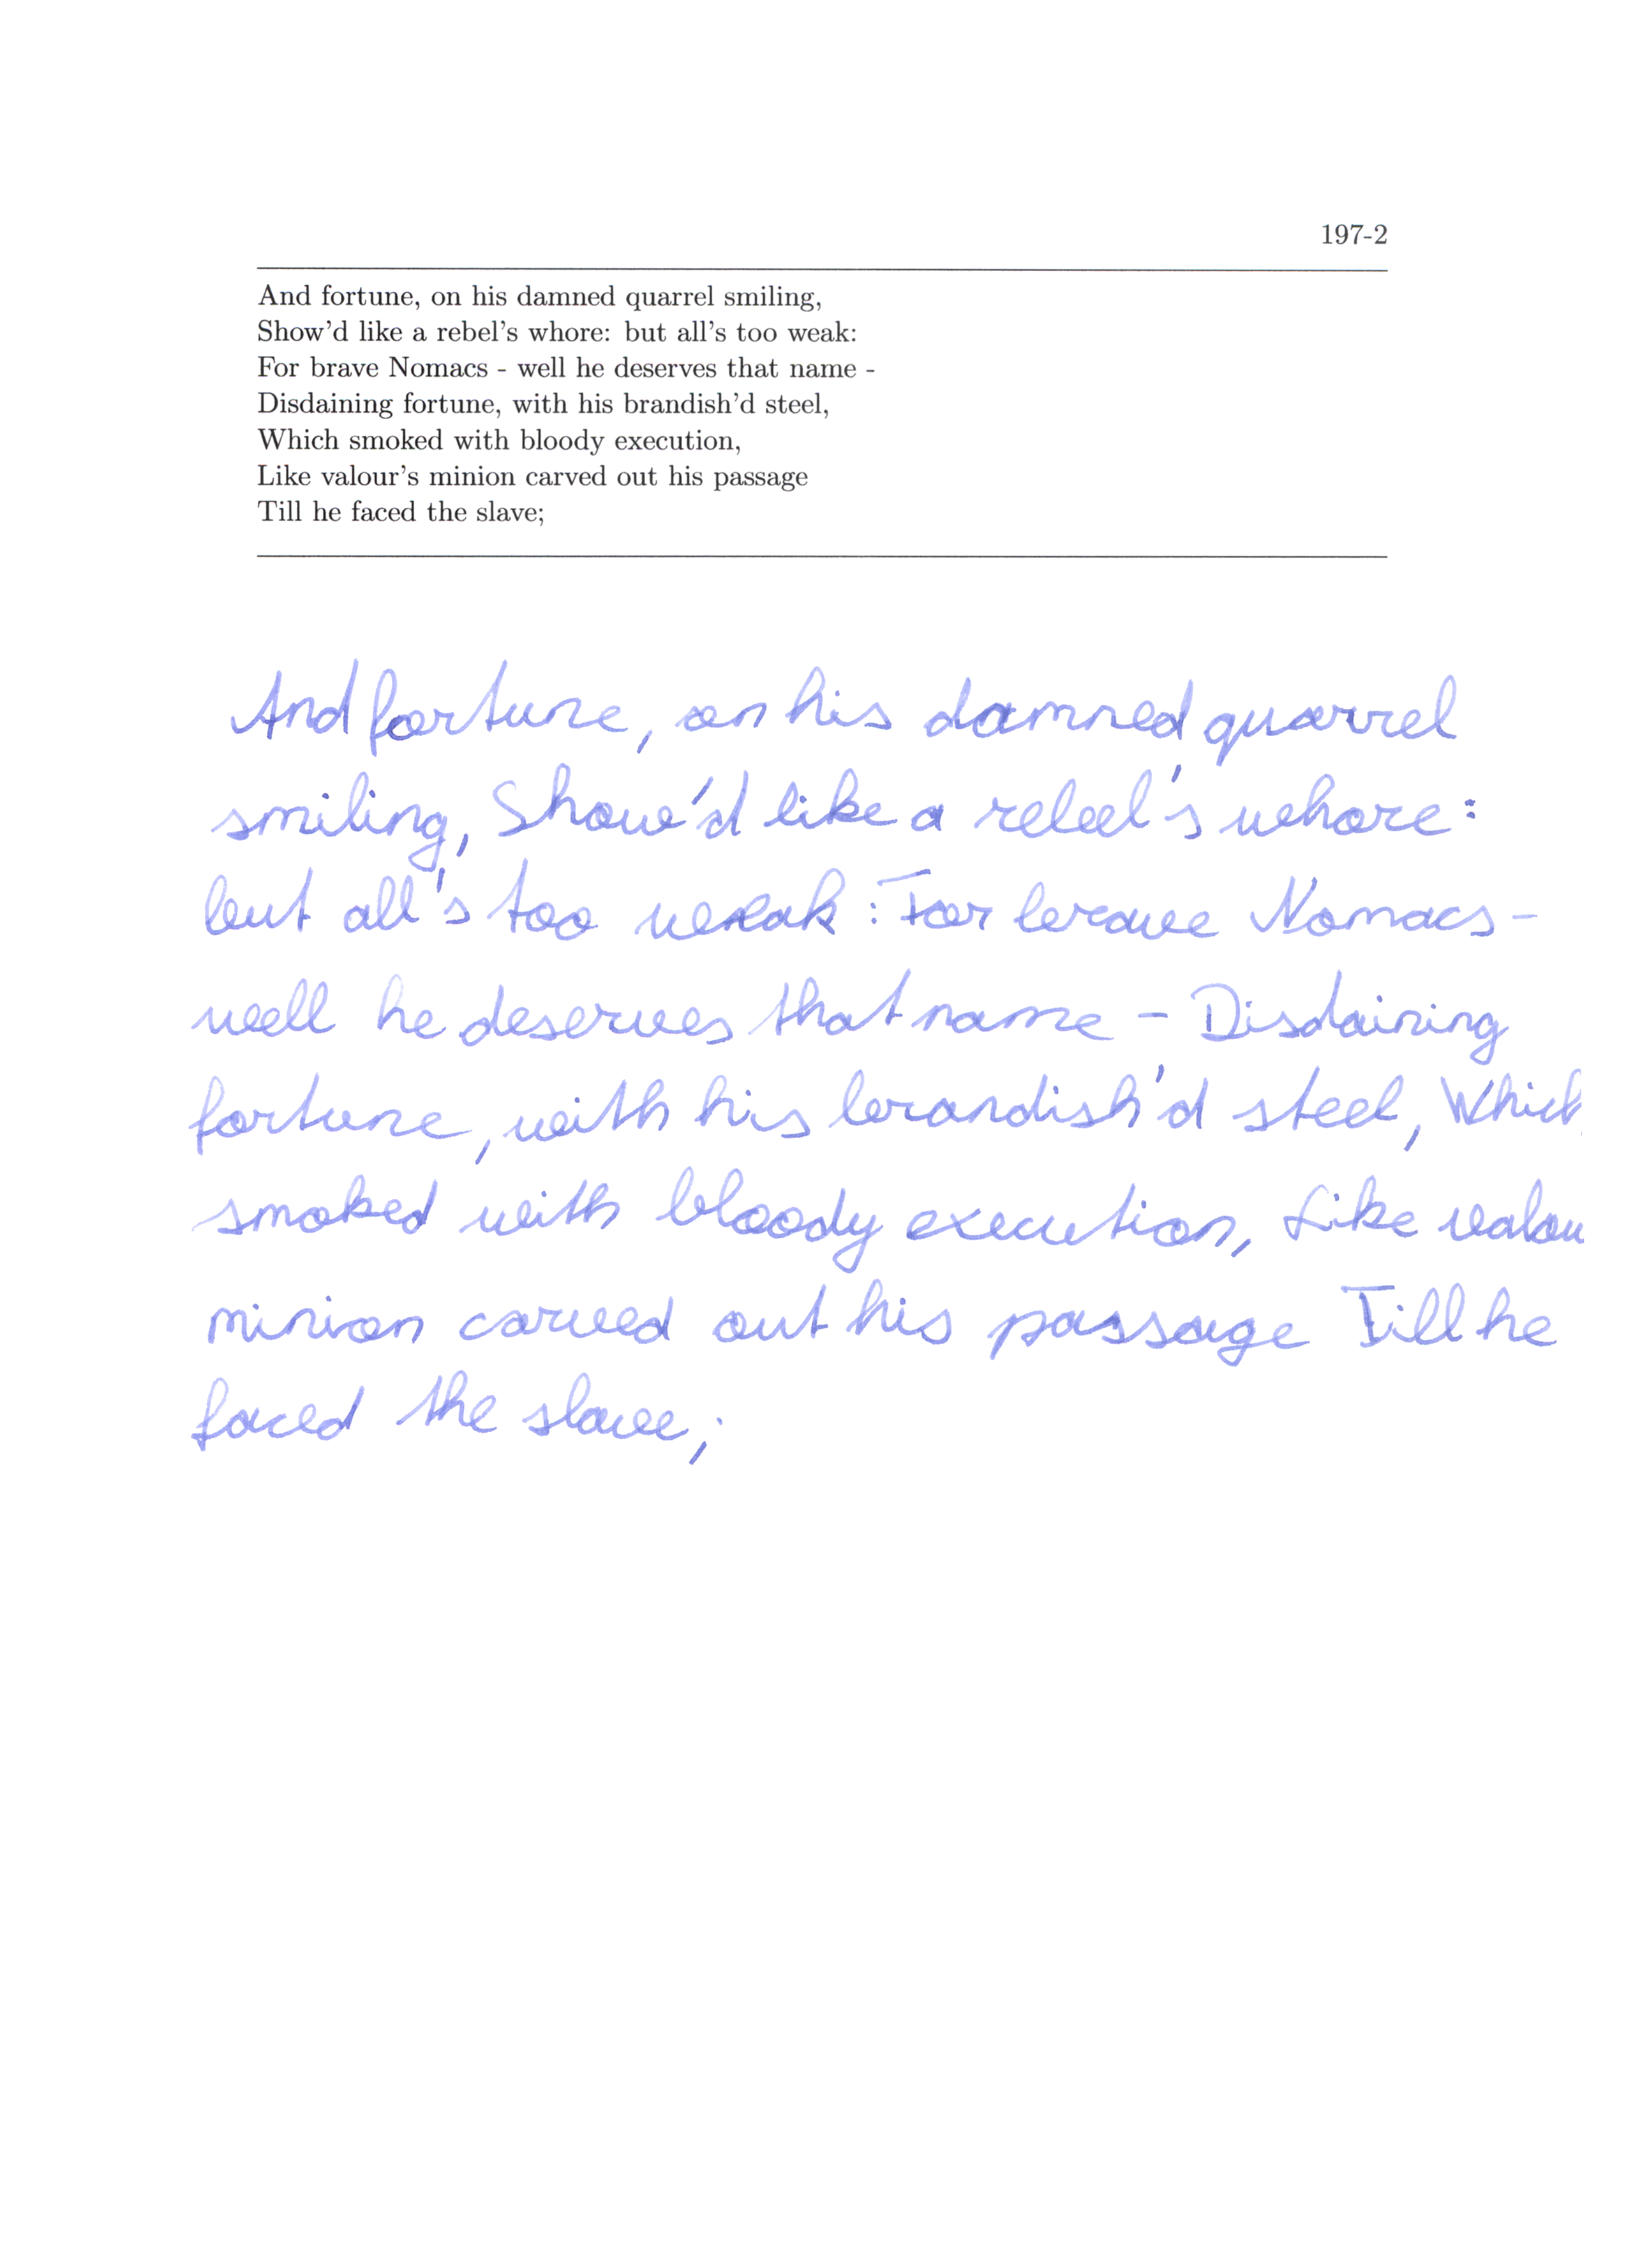 197-2
And fortune, on his damned quarrel smiling,
Show'd like a rebel's whore: but all's too weak:
For brave Nomacs - well he deserves that name -
Disdaining fortune, with his brandish'd steel,
Which smoked with bloody execution,
Like valour's minion carved out his passage
Till he faced the slave;
And fortune, on his damned quarrel
smiling, Show'd like a rebel's whore:
but all's too weak: For brave Nomacs -
well he deserves that name - Disdaining
fortune, with his brandish'd steel, Which
smoked with bloody execution, Like valou
minion carved out his passage Till he
faced the slave;